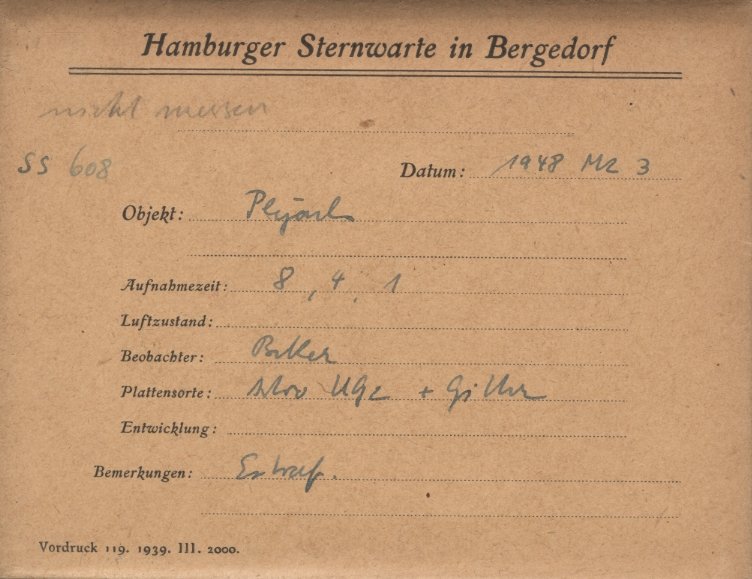 Hamburger Sternwarte in Bergedorf
nicht messen
SS 608
Datum: 1948 Mz 3
Objekt: Plejad
Aufnahmezeit: 8, 4, 1
Luftzustand:
Beobachter:
Plattensorte: UG2 + Gitter
Entwicklung:
Bemerkungen:
Vordruck 119. 1939. III. 2000.